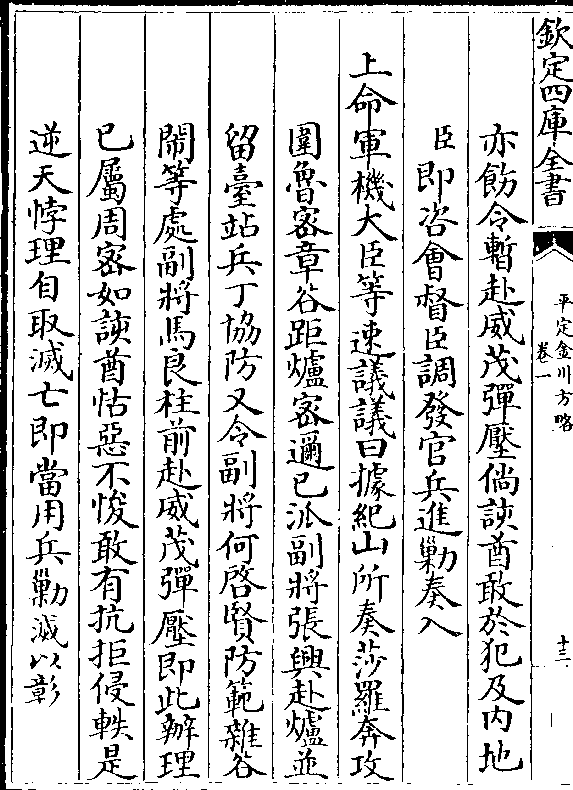 欽定四庫全書
平定金川方略
卷一
十三
亦飭令暫赴威茂彈壓倘該酋敢於犯及内地
臣即咨會督臣調發官兵進勦奏入
上命軍機大臣等速議議曰據紀山所奏莎羅奔攻
圍魯密章谷距爐密邇已派副將張興赴爐並
留臺站兵丁協防又令副將何啓賢防範雜谷
閙等處副將馬良柱前赴威茂彈壓即此辦理
已屬周密如該酋怙惡不悛敢有抗拒侵軼是
逆天悖理自取滅亡即當用兵勦滅以彰